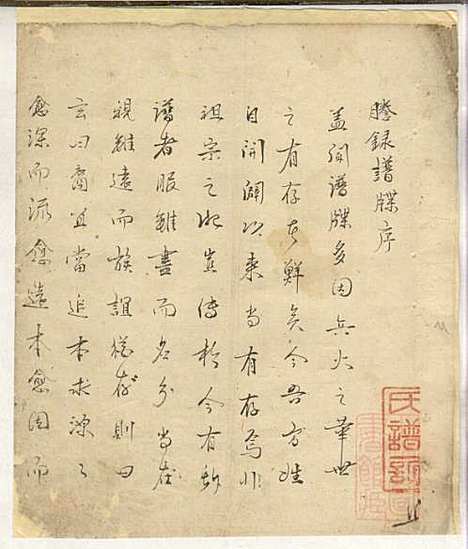 謄録譜牒序
盖聞譜牒多因兵火之華世
之有存者鮮矣今吾方姓
自開闢以來尚有存焉非
祖宗之 豈傳於今有
譜者服雖盡而名分尚在
親雖遠而族誼猶存則曰
玄曰裔且當追本求源之
愈深而流愈遠本愈固而
氏譜
書館